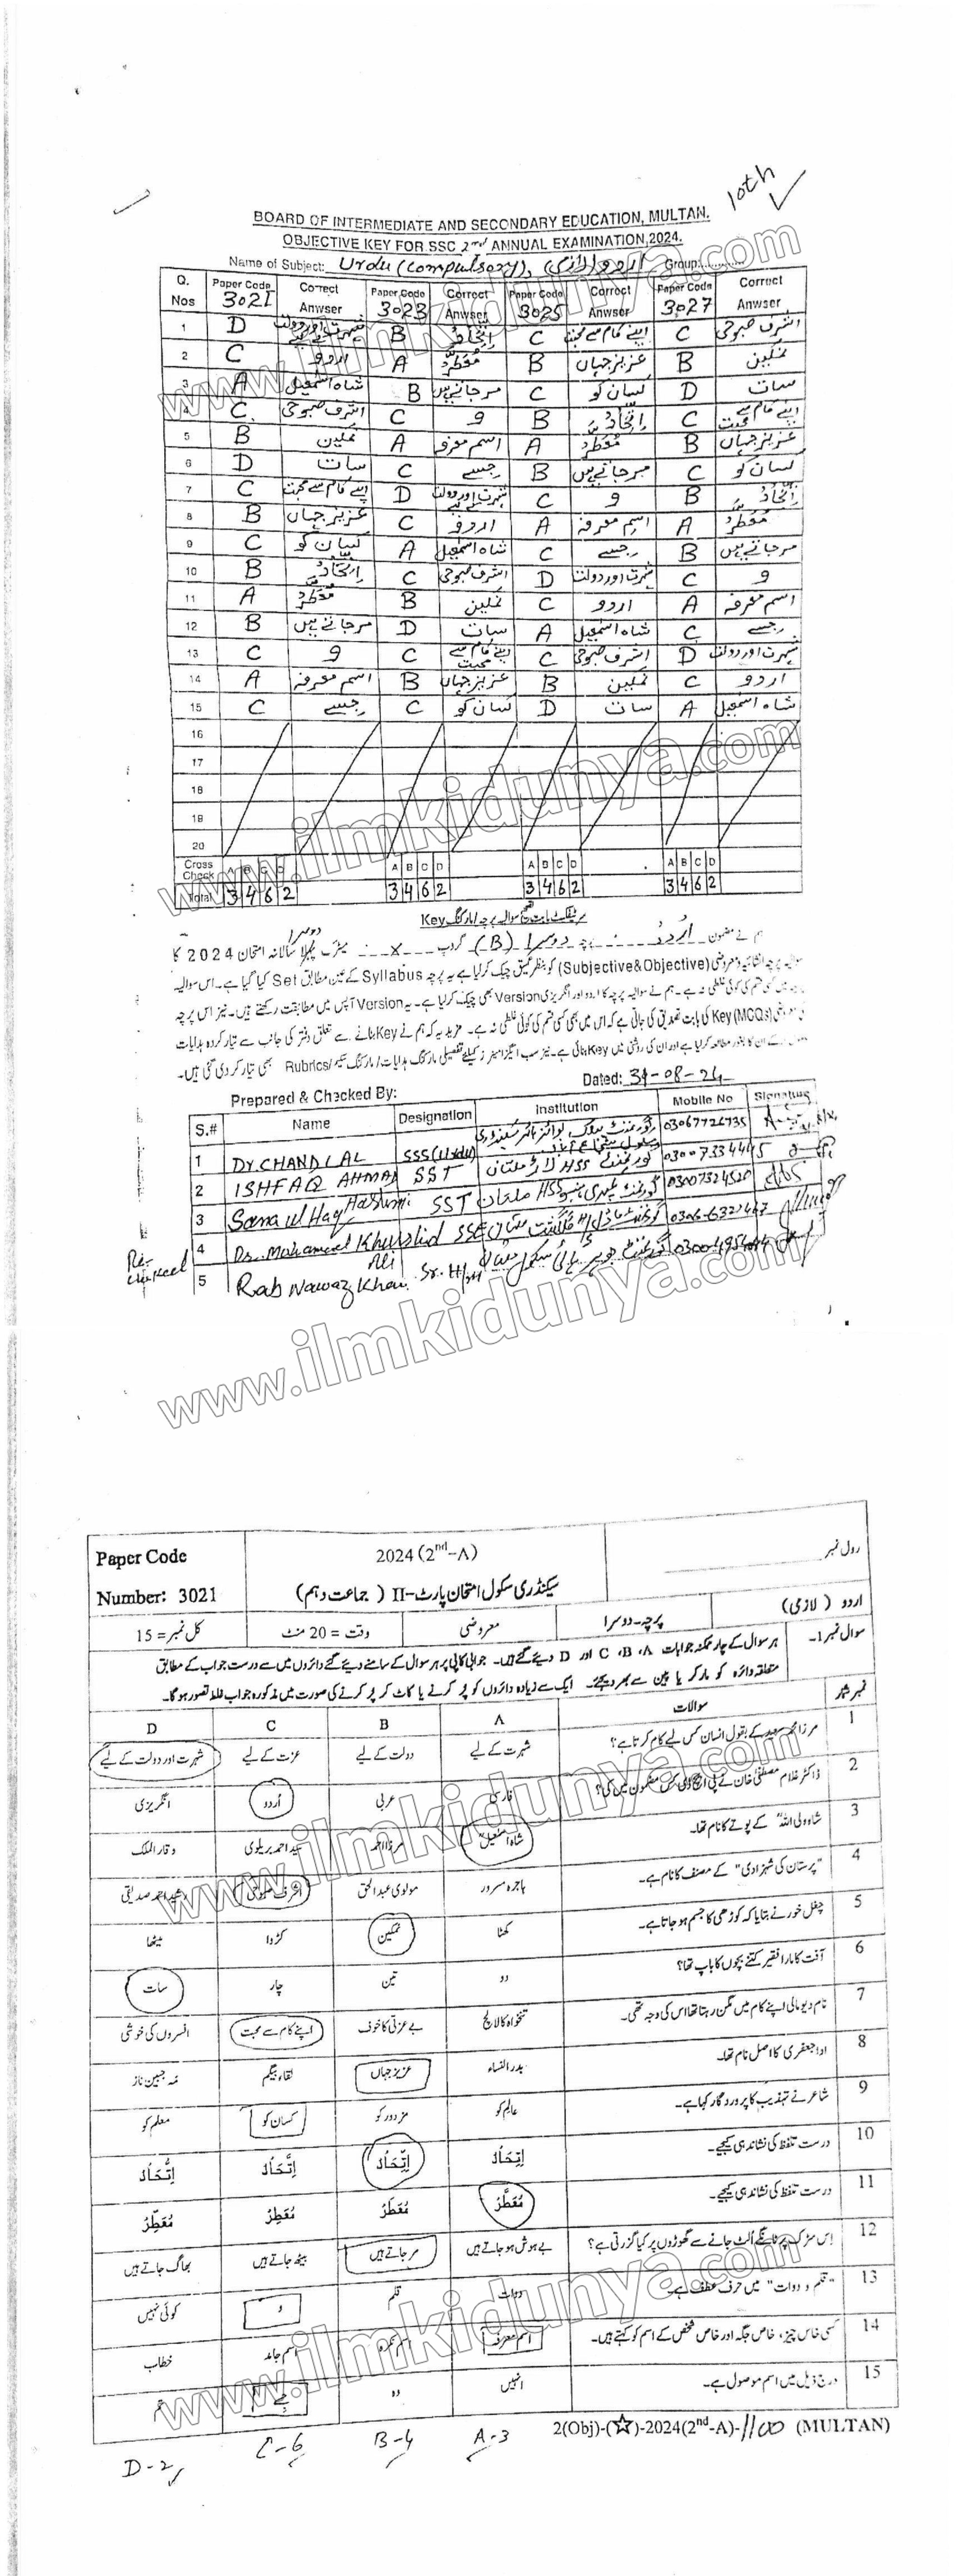 10th
BOARD OF INTERMEDIATE AND SECONDARY EDUCATION, MULTAN.
OBJECTIVE KEY FOR SSC 2nd ANNUAL EXAMINATION,2024.
Name of Subject: Urdu (compulsory), اردو (لازمی) Group:..........
Q. Nos Paper Code 3021 Correct Anwser Paper Code 3023 Correct Anwser Paper Code 3025 Correct Anwser Paper Code 3027 Correct Anwser
1 D شہرت اور دولت کے لیے B اِتِّحَادْ C اپنے کام سے محبت C اشرف صبوحی
2 C اردو A مُعَطَّرْ B عزیز جہاں B نمکین
3 A شاہ اسمٰعیل B مر جاتے ہیں C کسان کو D سات
4 C اشرف صبوحی C و B اِتِّحَادْ C اپنے کام سے محبت
5 B نمکین A اسم معرفہ A مُعَطَّرْ B عزیز جہاں
6 D سات C جسے B مر جاتے ہیں C کسان کو
7 C اپنے کام سے محبت D شہرت اور دولت کے لیے C و B اِتِّحَادْ
8 B عزیز جہاں C اردو A اسم معرفہ A مُعَطَّرْ
9 C کسان کو A شاہ اسمٰعیل C جسے B مر جاتے ہیں
10 B اِتِّحَادْ C اشرف صبوحی D شہرت اور دولت C و
11 A مُعَطَّرْ B نمکین C اردو A اسم معرفہ
12 B مر جاتے ہیں D سات A شاہ اسمٰعیل C جسے
13 C و C اپنے کام سے محبت C اشرف صبوحی D شہرت اور دولت
14 A اسم معرفہ B عزیز جہاں B نمکین C اردو
15 C جسے C کسان کو D سات A شاہ اسمٰعیل
16
17
18
19
20
Cross Check A B C D A B C D A B C D A B C D
Total 3 4 6 2 3 4 6 2 3 4 6 2 3 4 6 2
سرٹیفکیٹ بابت تصحیح سوالیہ پرچہ/مارکنگ Key
ہم نے مضمون اُردو پرچہ دوسرا (B) گروپ x میٹرک پہلا دوسرا سالانہ امتحان 2024 کا
سوالیہ پرچہ انشائیہ و معروضی (Subjective & Objective) کو بنظر عمیق چیک کر لیا ہے یہ پرچہ Syllabus کے عین مطابق Set کیا گیا ہے۔ اس سوالیہ
پرچہ میں کسی قسم کی کوئی غلطی نہ ہے۔ ہم نے سوالیہ پرچہ کا اردو اور انگریزی Version بھی چیک کر لیا ہے۔ یہ Version آپس میں مطابقت رکھتے ہیں۔ نیز اس پرچہ
کی معروضی (MCQs) Key کی بابت تصدیق کی جاتی ہے کہ اس میں بھی کسی قسم کی کوئی غلطی نہ ہے۔ مزید یہ کہ ہم نے Key بنانے سے متعلق دفتر کی جانب سے تیار کردہ ہدایات
کا بغور مطالعہ کر لیا ہے اور ان کی روشنی میں Key بنائی ہے۔ نیز سب ایگزامینرز کیلئے تفصیلی مارکنگ ہدایات/مارکنگ سکیم/Rubrics بھی تیار کر دی گئی ہیں۔
Prepared & Checked By: Dated: 31-08-24
S.# Name Designation Institution Mobile No Signature
1 Dr. CHAND LAL SSS (Urdu) 03067726735
2 ISHFAQ AHMAD SST 03007334445
3 Sanaul Haq Hashmi SST 03007324520
4 Dr. Mohammad Khurshid Ali SSE
5 Rab Nawaz Khan Sr. H/M
Re-checked
Paper Code Number: 3021
2024 (2nd-A)
رول نمبر
سیکنڈری سکول امتحان پارٹ-II ( جماعت دہم)
اردو ( لازمی) پرچہ-دوسرا معروضی وقت = 20 منٹ کل نمبر= 15
سوال نمبر 1- ہر سوال کے چار ممکنہ جوابات A ، B ، C اور D دیئے گئے ہیں۔ جوابی کاپی پر ہر سوال کے سامنے دیئے گئے دائروں میں سے درست جواب کے مطابق
متعلقہ دائرہ کو مارکر یا پین سے بھر دیجئے۔ ایک سے زیادہ دائروں کو پُر کرنے یا کاٹ کر پُر کرنے کی صورت میں مذکورہ جواب غلط تصور ہوگا۔
نمبر شمار سوالات A B C D
1 مرزا محمد سعید کے بقول انسان کس لیے کام کرتا ہے؟ شہرت کے لیے دولت کے لیے عزت کے لیے شہرت اور دولت کے لیے
2 ڈاکٹر غلام مصطفیٰ خان نے پی ایچ ڈی کس مضمون میں کی؟ فارسی عربی اُردو انگریزی
3 شاہ ولی اللہؒ کے پوتے کا نام تھا۔ شاہ اسمٰعیل مرزا احمد سید احمد بریلوی وقار الملک
4 "پرستان کی شہزادی" کے مصنف کا نام ہے۔ ہاجرہ مسرور مولوی عبدالحق اشرف صبوحی رشید احمد صدیقی
5 چغل خور نے بتایا کہ کوڑھی کا جسم ہو جاتا ہے۔ کھٹا نمکین کڑوا میٹھا
6 آفت کا مارا فقیر کتنے بچوں کا باپ تھا؟ دو تین چار سات
7 نام دیو مالی اپنے کام میں مگن رہتا تھا اس کی وجہ تھی۔ تنخواہ کا لالچ بے عزتی کا خوف اپنے کام سے محبت افسروں کی خوشی
8 ادا جعفری کا اصل نام تھا۔ بدر النساء عزیز جہاں لقاء بیگم مہ جبیں ناز
9 شاعر نے تہذیب کا پروردگار کہا ہے۔ عالم کو مزدور کو کسان کو معلم کو
10 درست تلفظ کی نشاندہی کیجیے۔ اِتِحَادْ اِتِّحَادْ اِتَّحَادْ اِتُّحَادْ
11 درست تلفظ کی نشاندہی کیجیے۔ مُعَطَّرْ مُعَطَرْ مُعَطِرْ مُعَطِّرْ
12 اِس سڑک پر تانگے اُلٹ جانے سے گھوڑوں پر کیا گزرتی ہے؟ بے ہوش ہو جاتے ہیں مر جاتے ہیں بیٹھ جاتے ہیں بھاگ جاتے ہیں
13 "قلم و دوات" میں حرف عطف ہے۔ دوات قلم و کوئی نہیں
14 کسی خاص چیز، خاص جگہ اور خاص شخص کے اسم کو کہتے ہیں۔ اسم معرفہ اسم نکرہ اسم جامد خطاب
15 درج ذیل میں اسم موصول ہے۔ انہیں وہ جسے
2(Obj)-(☆)-2024(2nd-A)-1100 (MULTAN)
D-2 C-6 B-4 A-3
www.ilmkidunya.com
www.ilmkidunya.com
www.ilmkidunya.com
www.ilmkidunya.com
www.ilmkidunya.com